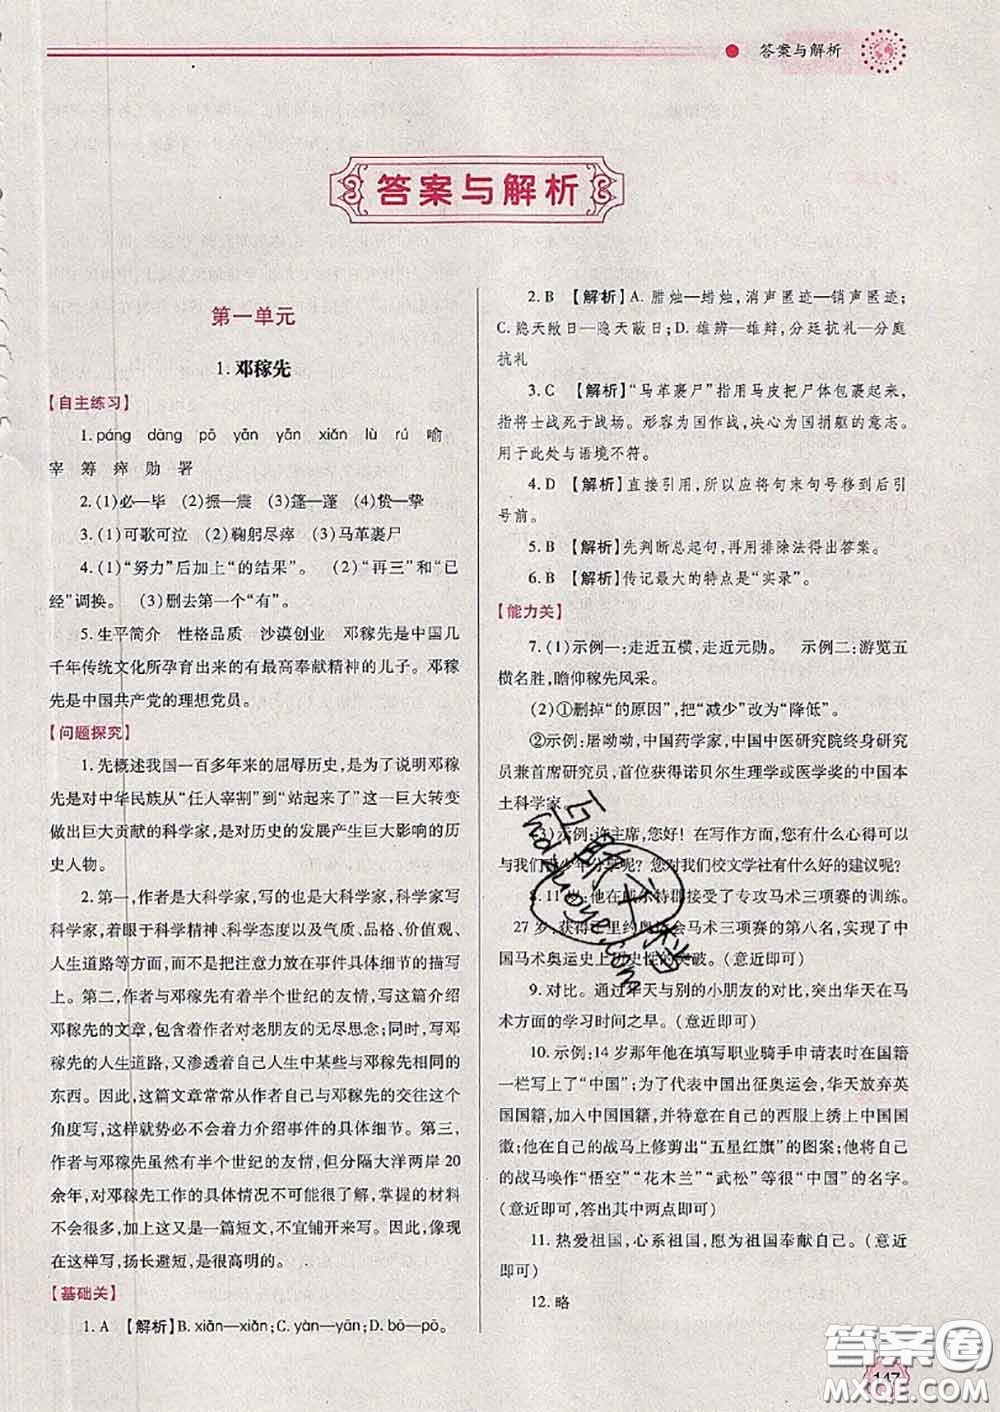 答案与解析
答案与解析
第一单元
1.邓稼先
【自主练习】
1.páng dàng pō yān yān xiǎn lù rú 喻
宰 筹 瘁 勋 署
2.(1)必—毕 (2)振—震 (3)篷—蓬 (4)贽—挚
3.(1)可歌可泣 (2)鞠躬尽瘁 (3)马革裹尸
4.(1)“努力”后加上“的结果”。 (2)“再三”和“已
经”调换。 (3)删去第一个“有”。
5.生平简介 性格品质 沙漠创业 邓稼先是中国几
千年传统文化所孕育出来的有最高奉献精神的儿子。邓稼
先是中国共产党的理想党员。
【问题探究】
1.先概述我国一百多年来的屈辱历史,是为了说明邓稼
先是对中华民族从“任人宰割”到“站起来了”这一巨大转变
做出巨大贡献的科学家,是对历史的发展产生巨大影响的历
史人物。
2.第一,作者是大科学家,写的也是大科学家,科学家写
科学家,着眼于科学精神、科学态度以及气质、品格、价值观、
人生道路等方面,而不是把注意力放在事件具体细节的描写
上。第二,作者与邓稼先有着半个世纪的友情,写这篇介绍
邓稼先的文章,包含着作者对老朋友的无尽思念;同时,写邓
稼先的人生道路,又渗透着自己人生中某些与邓稼先相同的
东西。因此,这篇文章常常从作者自己与邓稼先的交往这个
角度写,这样就势必不会着力介绍事件的具体细节。第三,
作者与邓稼先虽然有半个世纪的友情,但分隔大洋两岸20
余年,对邓稼先工作的具体情况不可能很了解,掌握的材料
不会很多,加上这又是一篇短文,不宜铺开来写。因此,像现
在这样写,扬长避短,是很高明的。
【基础关】
1.A 【解析】B.xiān—xiǎn;C.yàn—yān;D.bō—pō。
2.B 【解析】A.腊烛—蜡烛,消声匿迹—销声匿迹;
C.隐天敝日—隐天蔽日;D.雄辨—雄辩,分廷抗礼—分庭
抗礼
3.C 【解析】“马革裹尸”指用马皮把尸体包裹起来,
指将士战死于战场。形容为国作战,决心为国捐躯的意志。
用于此处与语境不符。
4.D 【解析】直接引用,所以应将句末句号移到后引
号前。
5.B 【解析】先判断总起句,再用排除法得出答案。
6.B 【解析】传记最大的特点是“实录”。
【能力关】
7.(1)示例一:走近五横,走近元勋。 示例二:游览五
横名胜,瞻仰稼先风采。
(2)①删掉“的原因”,把“减少”改为“降低”。
②示例:屠呦呦,中国药学家,中国中医研究院终身研究
员兼首席研究员,首位获得诺贝尔生理学或医学奖的中国本
土科学家。
(3)示例:许主席,您好!在写作方面,您有什么心得可以
与我们青少年分享呢?您对我们校文学社有什么好的建议呢?
8.11岁:他在威尔特郡接受了专攻马术三项赛的训练。
27岁:获得里约奥运会马术三项赛的第八名,实现了中
国马术奥运史上历史性的突破。(意近即可)
9.对比。通过华天与别的小朋友的对比,突出华天在马
术方面的学习时间之早。(意近即可)
10.示例:14岁那年他在填写职业骑手申请表时在国籍
一栏写上了“中国”;为了代表中国出征奥运会,华天放弃英
国国籍,加入中国国籍,并特意在自己的西服上绣上中国国
徽;他在自己的战马上修剪出“五星红旗”的图案;他将自己
的战马唤作“悟空”“花木兰”“武松”等很“中国”的名字。
(意近即可,答出其中两点即可)
11.热爱祖国,心系祖国,愿为祖国奉献自己。(意近
即可)
12.略
147
答案圈
MXQE.COM